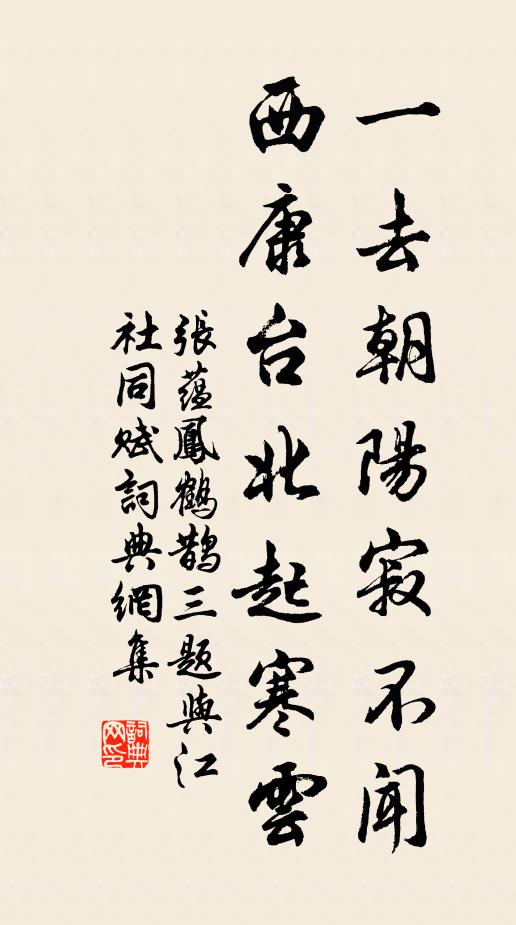 一去朝陽寂不聞
西康台北起寒雲
張蘊鳳鶴鵲三題與江
社同賦詞典網集
詞典網印